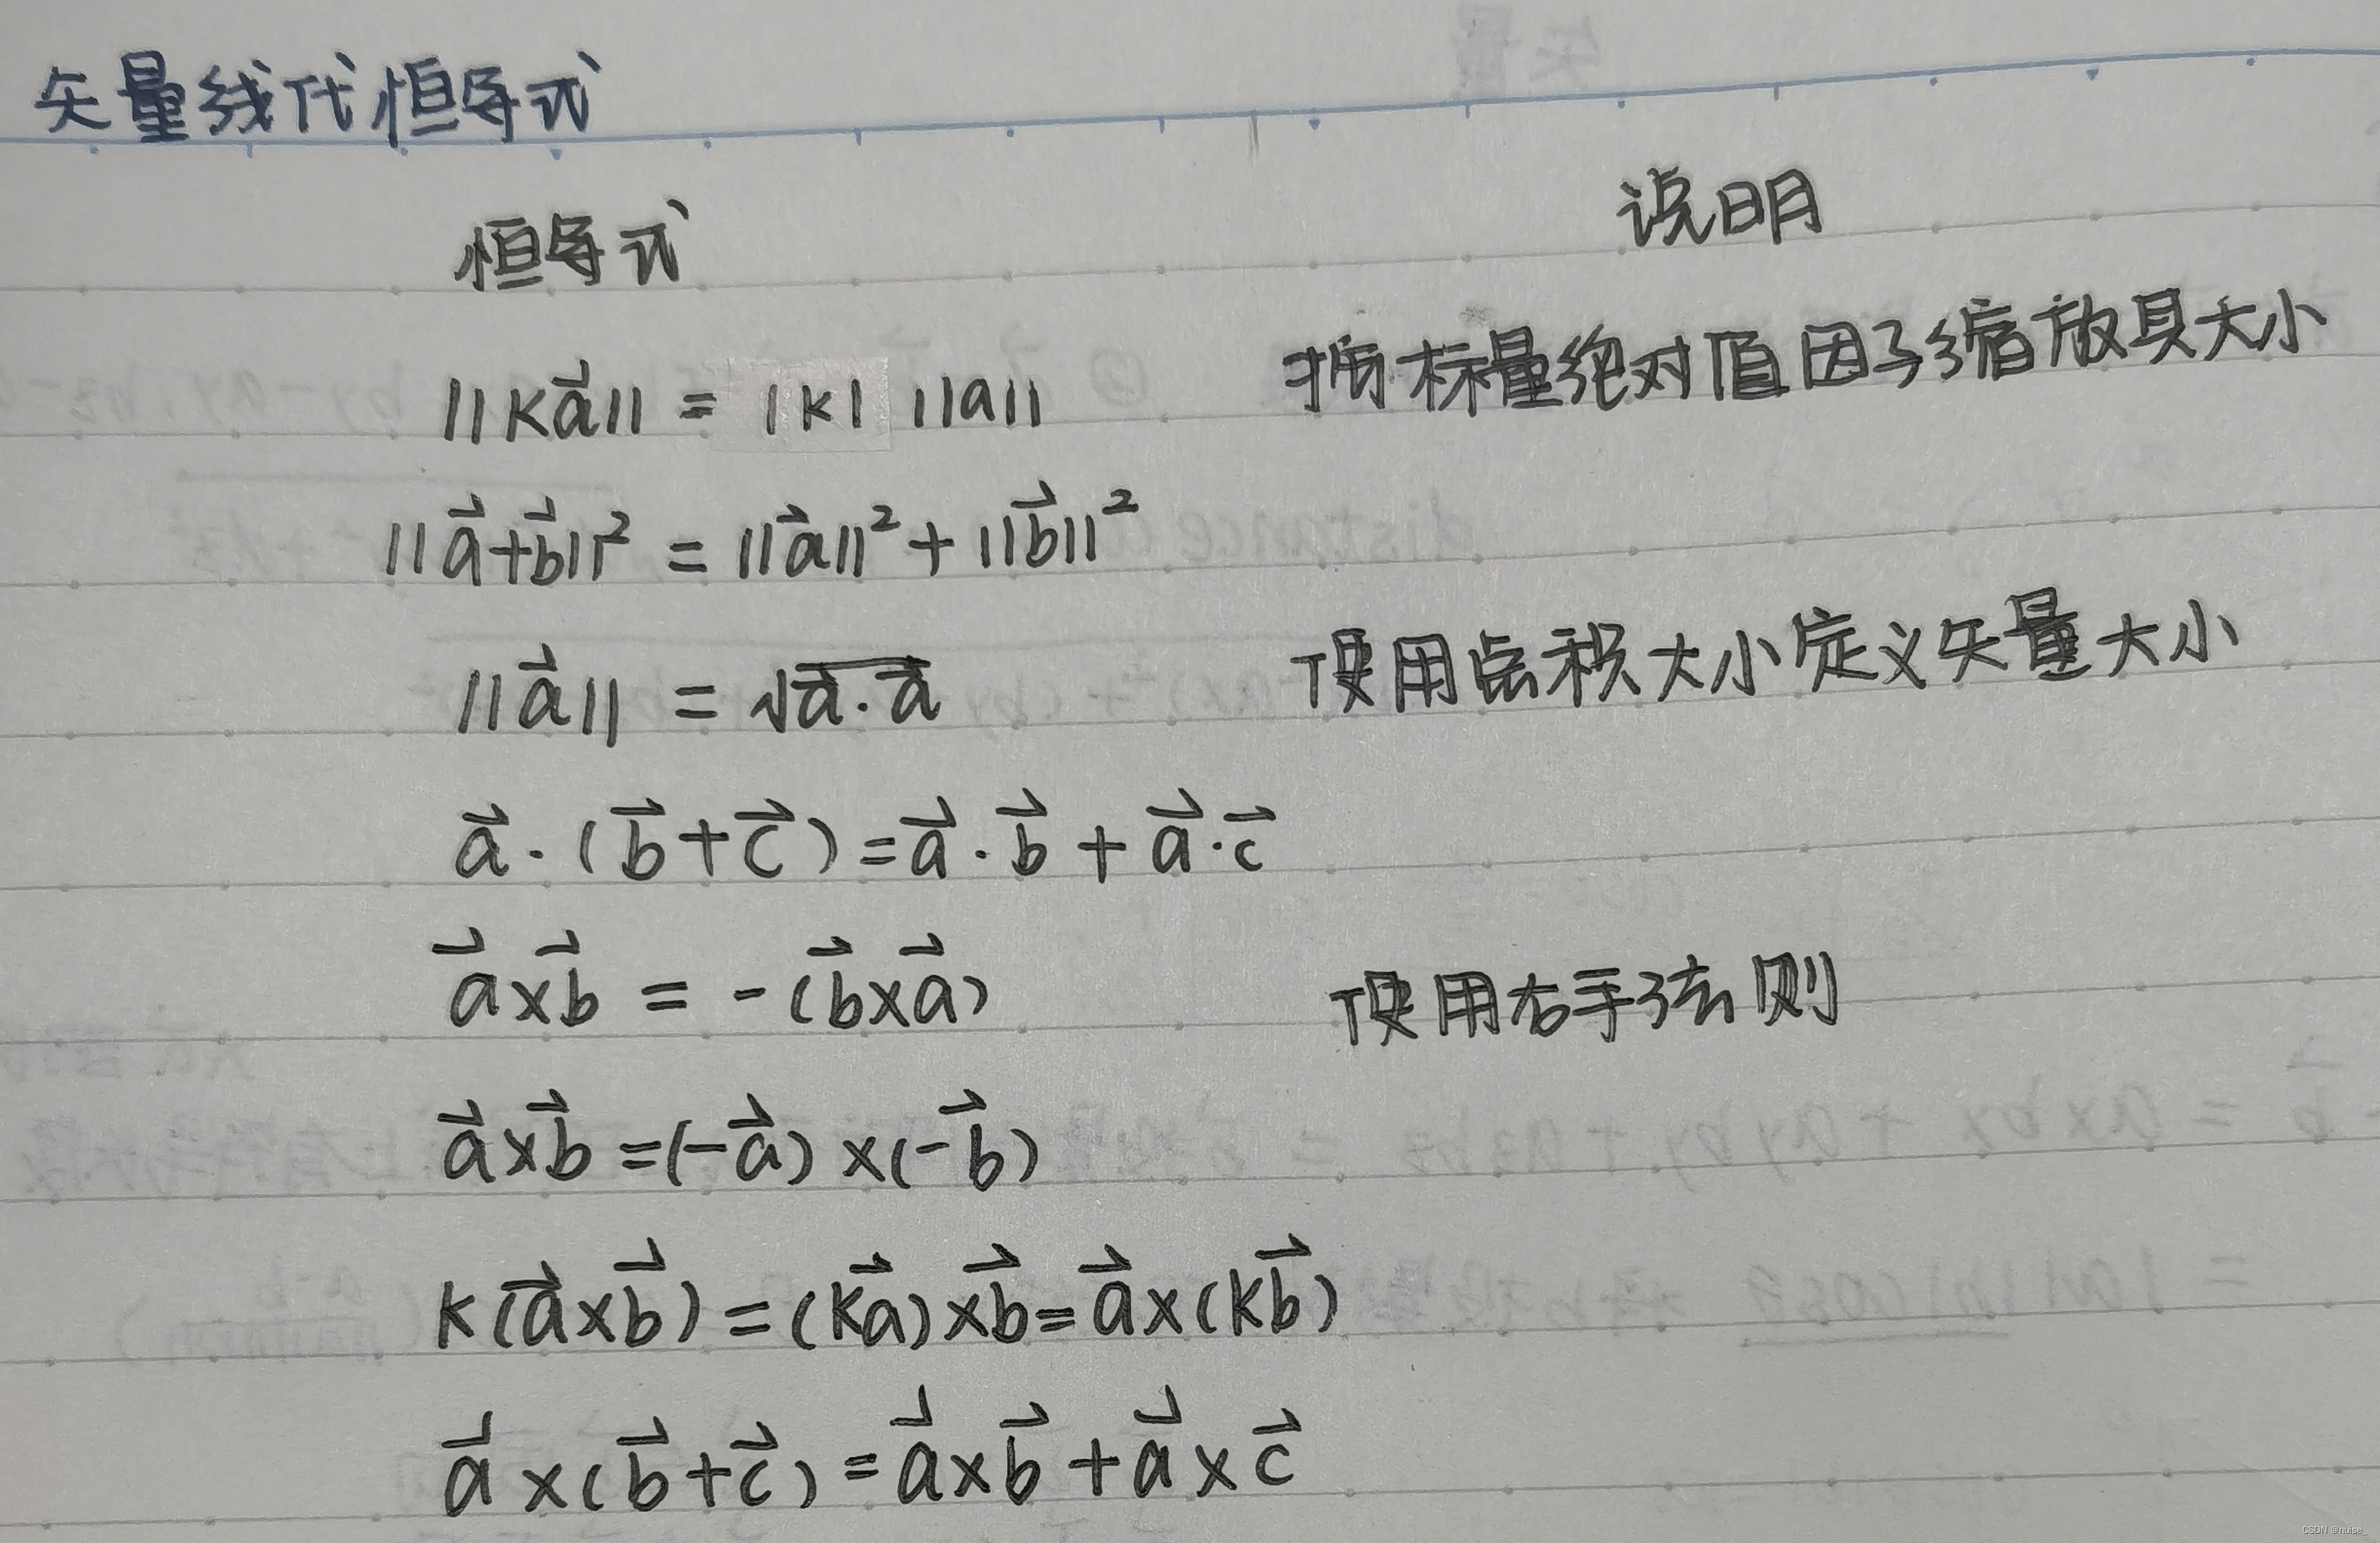 矢量线代恒等式
恒等式 说明
||k\vec{a}|| = |k| ||a|| 按标量绝对值因子缩放其大小
||\vec{a}+\vec{b}||² = ||\vec{a}||² + ||\vec{b}||²
||\vec{a}|| = √\vec{a}·\vec{a} 使用点积大小定义矢量大小
\vec{a}·(\vec{b}+\vec{c}) = \vec{a}·\vec{b} + \vec{a}·\vec{c}
\vec{a}×\vec{b} = -(\vec{b}×\vec{a}) 使用右手法则
\vec{a}×\vec{b} = (-\vec{a})×(-\vec{b})
k(\vec{a}×\vec{b}) = (k\vec{a})×\vec{b} = \vec{a}×(k\vec{b})
\vec{a}×(\vec{b}+\vec{c}) = \vec{a}×\vec{b} + \vec{a}×\vec{c}